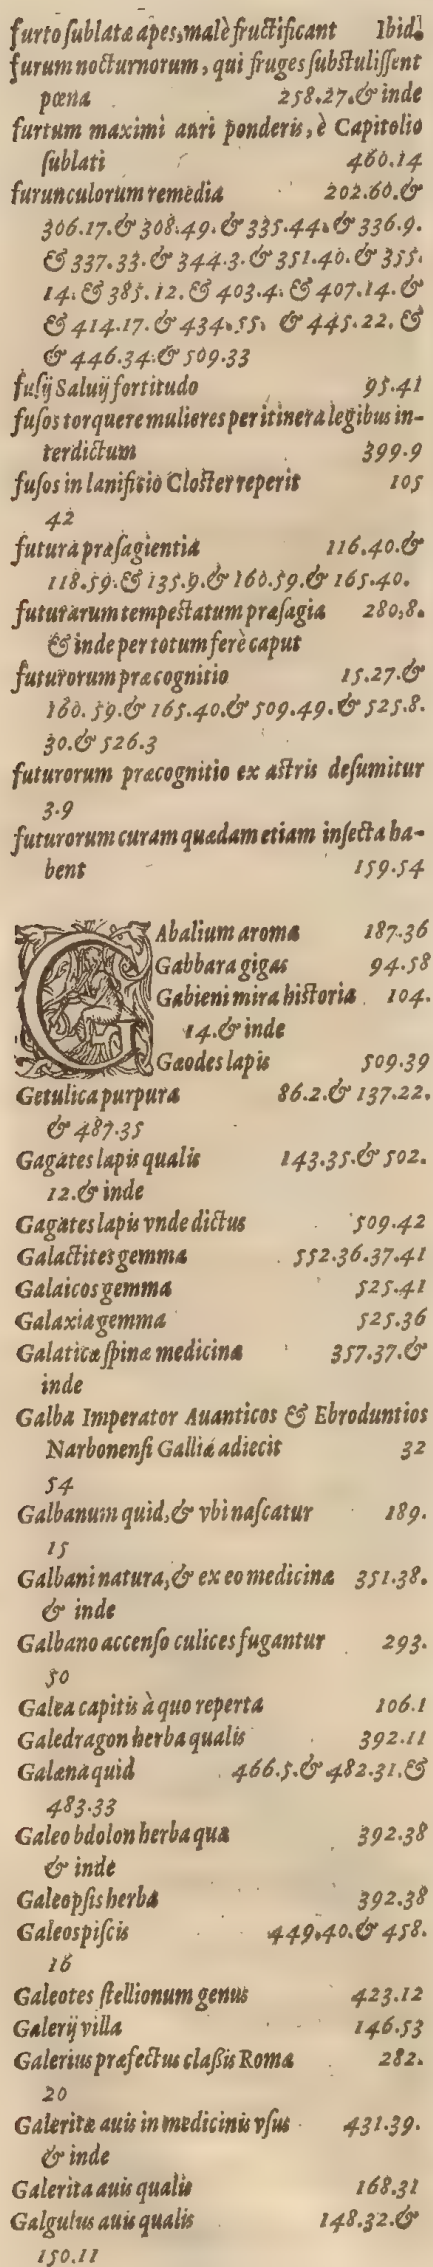 furto sublatæ apes, malè fructificant Ibid.
furum nocturnorum, qui fruges substulissent
pœna 258.27.& inde
furtum maximi auri ponderis, è Capitolio
sublati 460.14
furunculorum remedia 202.60.&
306.17.& 308.49.& 335.44.& 336.9.
& 337.33.& 344.3.& 351.40.& 355.
14.& 385.12.& 403.4.& 407.14.&
& 414.17.& 434.55. & 445.22.&
& 446.34.& 509.33
fusij Saluij fortitudo 95.41
fusos torquere mulieres per itinera legibus in-
terdictum 399.9
fusos in lanificio Closter reperit 105
42
futura præsagientia 116.40.&
118.59.& 135.9.& 160.59.& 165.40.
futurarum tempestatum præsagia 280.8.
& inde per totum ferè caput
futurorum præcognitio 15.27.&
160.59.& 165.40.& 509.49.& 525.8.
30.& 526.3
futurorum præcognitio ex astris desumitur
3.9
futurorum curam quædam etiam insecta ha-
bent 159.54
GAbalium aroma 187.36
Gabbara gigas 94.58
Gabieni mira historia 104.
14.& inde
Gæodes lapis 509.39
Getulica purpura 86.2.& 137.22.
& 487.35
Gagates lapis qualis 143.35.& 502.
12.& inde
Gagates lapis vnde dictus 509.42
Galactites gemma 552.36.37.41
Galaicos gemma 525.41
Galaxia gemma 525.36
Galaticæ spinæ medicina 357.37.&
inde
Galba Imperator Auanticos & Ebroduntios
Narbonensi Galliæ adiecit 32
54
Galbanum quid, & vbi nascatur 189.
15
Galbani natura, & ex eo medicinæ 351.38.
& inde
Galbano accenso culices fugantur 293.
50
Galea capitis à quo reperta 106.1
Galedragon herba qualis 392.11
Galæna quid 466.5.& 482.31.&
483.33
Galeobdolon herba quæ 392.38
& inde
Galeopsis herba 392.38
Galeos piscis 449.40.& 458.
16
Galeotes stellionum genus 423.12
Galerij villa 146.53
Galerius præfectus classis Romæ 282.
20
Galeritæ auis in medicinis vsus 431.39.
& inde
Galerita auis qualis 168.31
Galgulus auis qualis 148.32.&
150.11